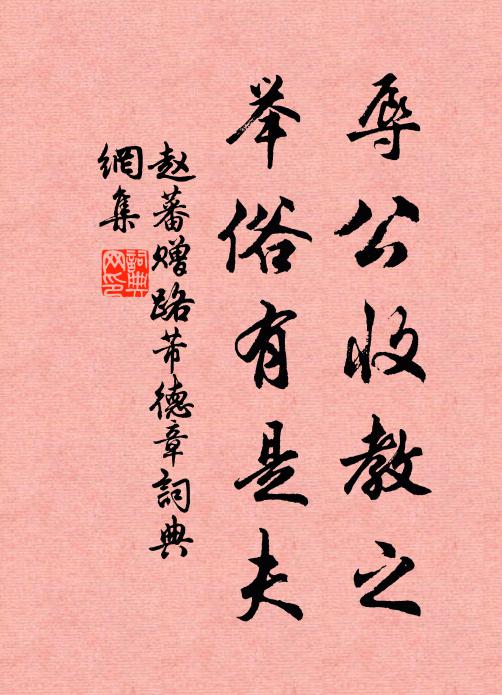 辱公收教之
举俗有是夫
赵蕃赠路芾德章詞典
網集
詞典
网印